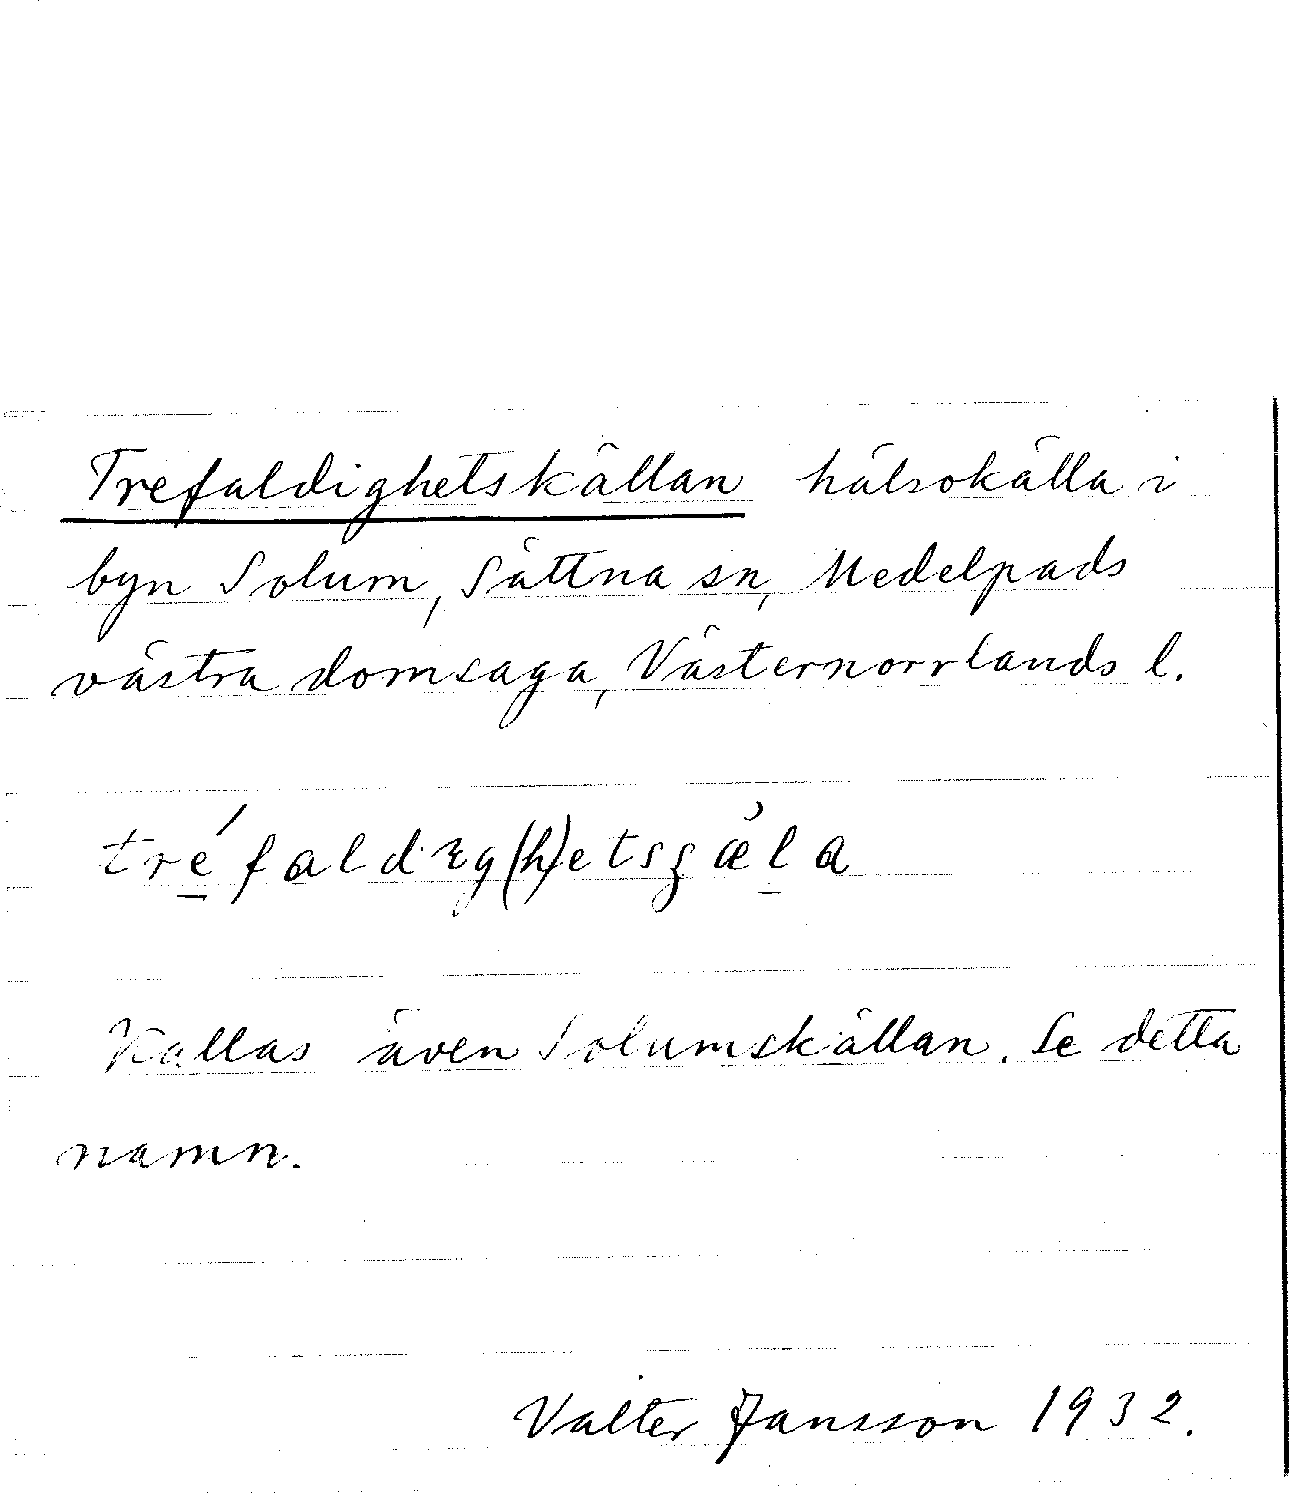 Trefaldighetskällan hälsokälla i
byn Solum, Sättna sn, Medelpads
västra domsaga, Västernorrlands l.
Kallas även Solumskällan. Se detta
namn.
Valter Jansson 1932.